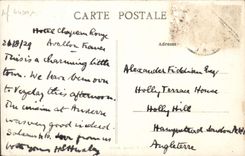 CARTE POSTALE
Hotel Chapeau Rouge
26/8/29 Avallon France
This is a charming little
town. We have been over
to Vezelay this afternoon.
The cuisine at Auxerre
was very good indeed.
love from us
both yours
Alexander Fiddian Esq
Holly Terrace House
Holly Hill
Hampstead London
Angleterre